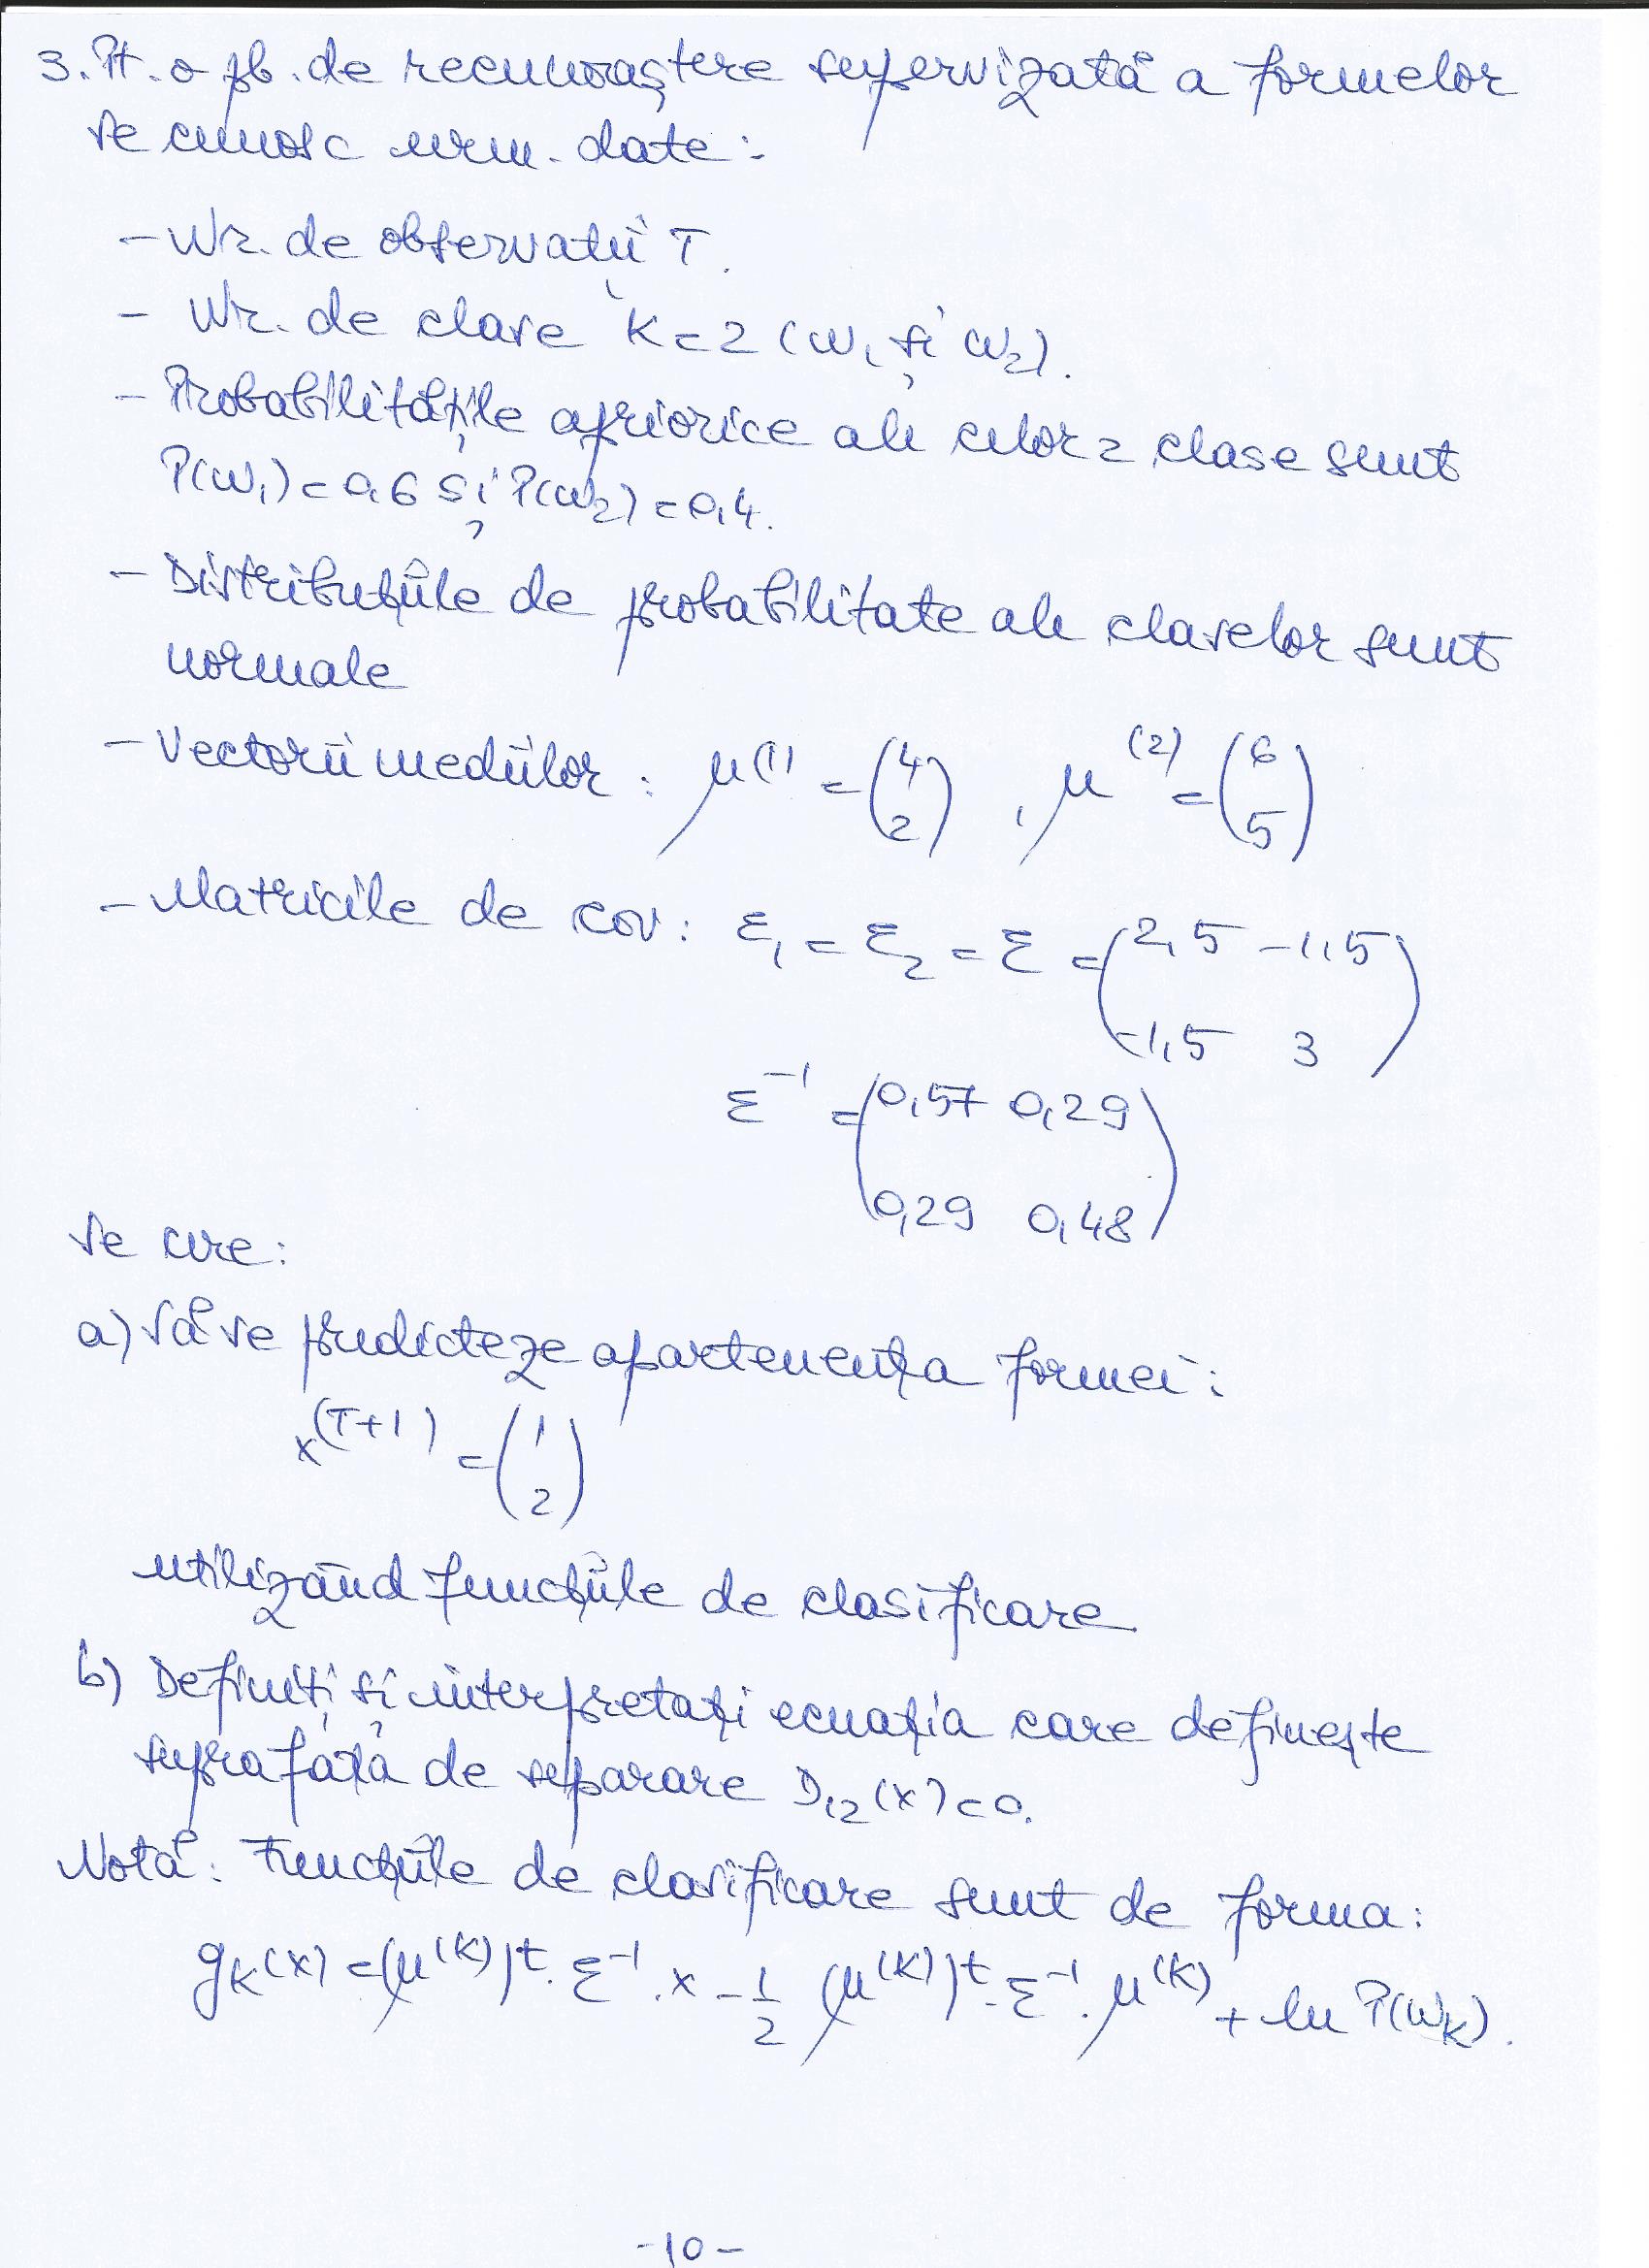 3. Pt. o pb. de recunoaștere supervizată a formelor
se cunosc urm. date:
- Nr. de observații T.
- Nr. de clase K=2 (ω₁ și ω₂).
- Probabilitățile apriorice ale celor 2 clase sunt
P(ω₁)=0,6 și P(ω₂)=0,4.
- Distribuțiile de probabilitate ale claselor sunt
normale
- Vectorii mediilor: μ⁽¹⁾ = (4 2), μ⁽²⁾ = (6 5)
- Matricile de cov: Σ₁ = Σ₂ = Σ = (2,5 -1,5
-1,5 3)
Σ⁻¹ = (0,57 0,29
0,29 0,48)
Se cere:
a) Să se predicteze apartenența formei:
x⁽ᵀ⁺¹⁾ = (1 2)
utilizând funcțiile de clasificare
b) Definiți și interpretați ecuația care definește
suprafața de separare D₁₂(x)=0.
Notă: Funcțiile de clasificare sunt de forma:
gₖ(x) = (μ⁽ᵏ⁾)ᵗ · Σ⁻¹ · x - 1/2 (μ⁽ᵏ⁾)ᵗ · Σ⁻¹ · μ⁽ᵏ⁾ + ln P(ωₖ).
-10-